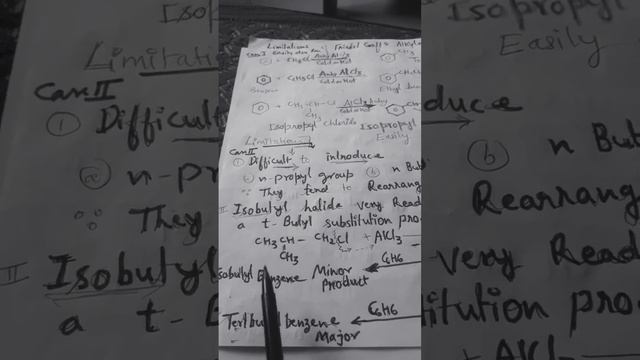 Limitations Friedel Craft's Alkyl
Case I Easily
CH3Cl Anhy AlCl3
Cold or Hot
+ C2H5Cl Anhy AlCl3
Cold or Hot
+ CH3-CH-Cl AlCl3 Anhy
CH3 Cold or Hot
Isopropyl chloride Isopropyl
Easily
Limitation
Case II
① Difficult to introduce
ⓐ n-propyl group ⓑ n But
∵ They tend to Rearran
II Isobutyl halide very Read
a t-Butyl substitution pro
CH3 CH - CH2Cl + AlCl3
CH3
C6H6
sobutyl Benzene Minor
Product
C6H6
Tert butyl benzene
Major